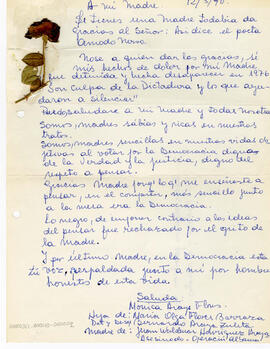 A mi Madre 12/5/90.
"Si tienes una Madre todabía da
gracias al Señor. Asi dice el poeta
Amado Nervo.
Nose a quien dar las gracias, si
mis hechos de dolor por mi Madre
fue detenida y hecha desaparecer en 1976
Son culpa de la Dictadura y lo que ayu
daron a Silenciar"
a mi Madre y todas nosotras
Somos, madres sabias y ricas en nuestros
tratos.
Somos, madres sencillas en nuestras vidas
al votar por la Democracia
de la Verdad y la justicia, digno del
respeto a pensar.
Gracias Madre me enseñaste a
pensar, en el más sencillo junto
a la mesa era la Democracia.
Lo negro, de contrario a las ideas
del pensar fue rechazado por el grito de
la Madre.
Y por último Madre, en la Democracia esta
tu voz, respaldada junto a mi por hombres
honestos de esta vida.
Saluda
Monica Araya Flores
Hija de: María Olga Flores Barraza
Det y Desap Bernardo Araya Zuleta
Madre de: Juan Waldemar Henríquez Araya
Asesinado - Operación Albania